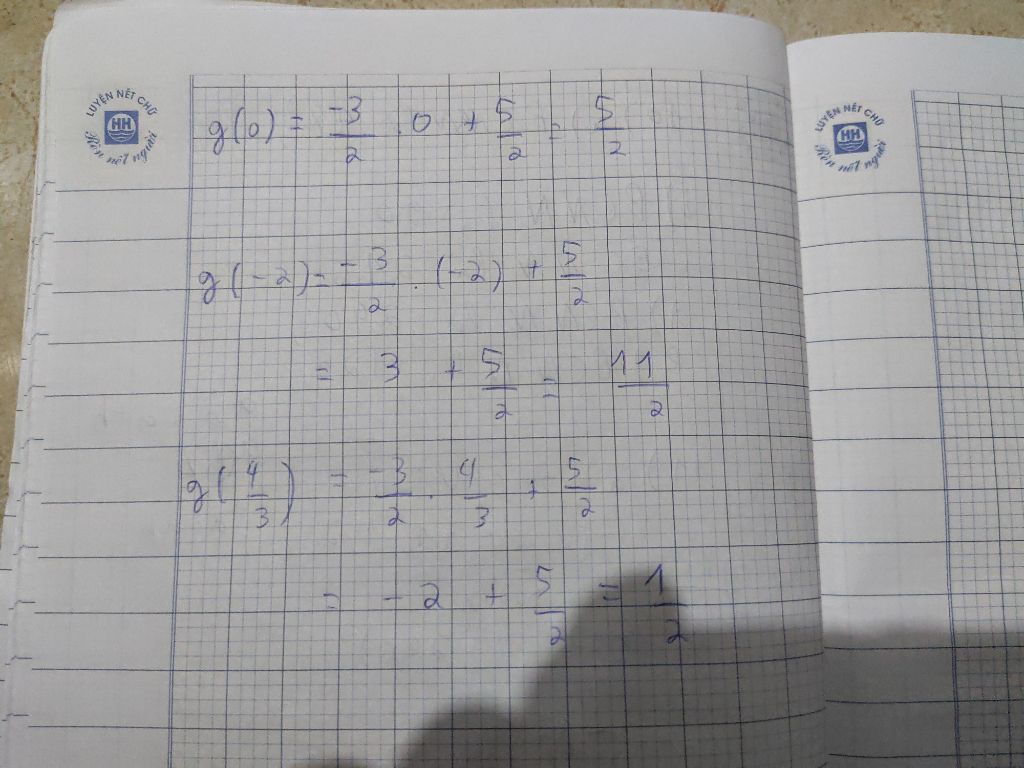 LUYỆN NÉT CHỮ
HH
Rèn nết người
g(0) = -3/2 . 0 + 5/2 = 5/2
g(-2) = -3/2 . (-2) + 5/2
= 3 + 5/2 = 11/2
g(4/3) = -3/2 . 4/3 + 5/2
= -2 + 5/2 = 1/2
LUYỆN NÉT CHỮ
HH
Rèn nết người